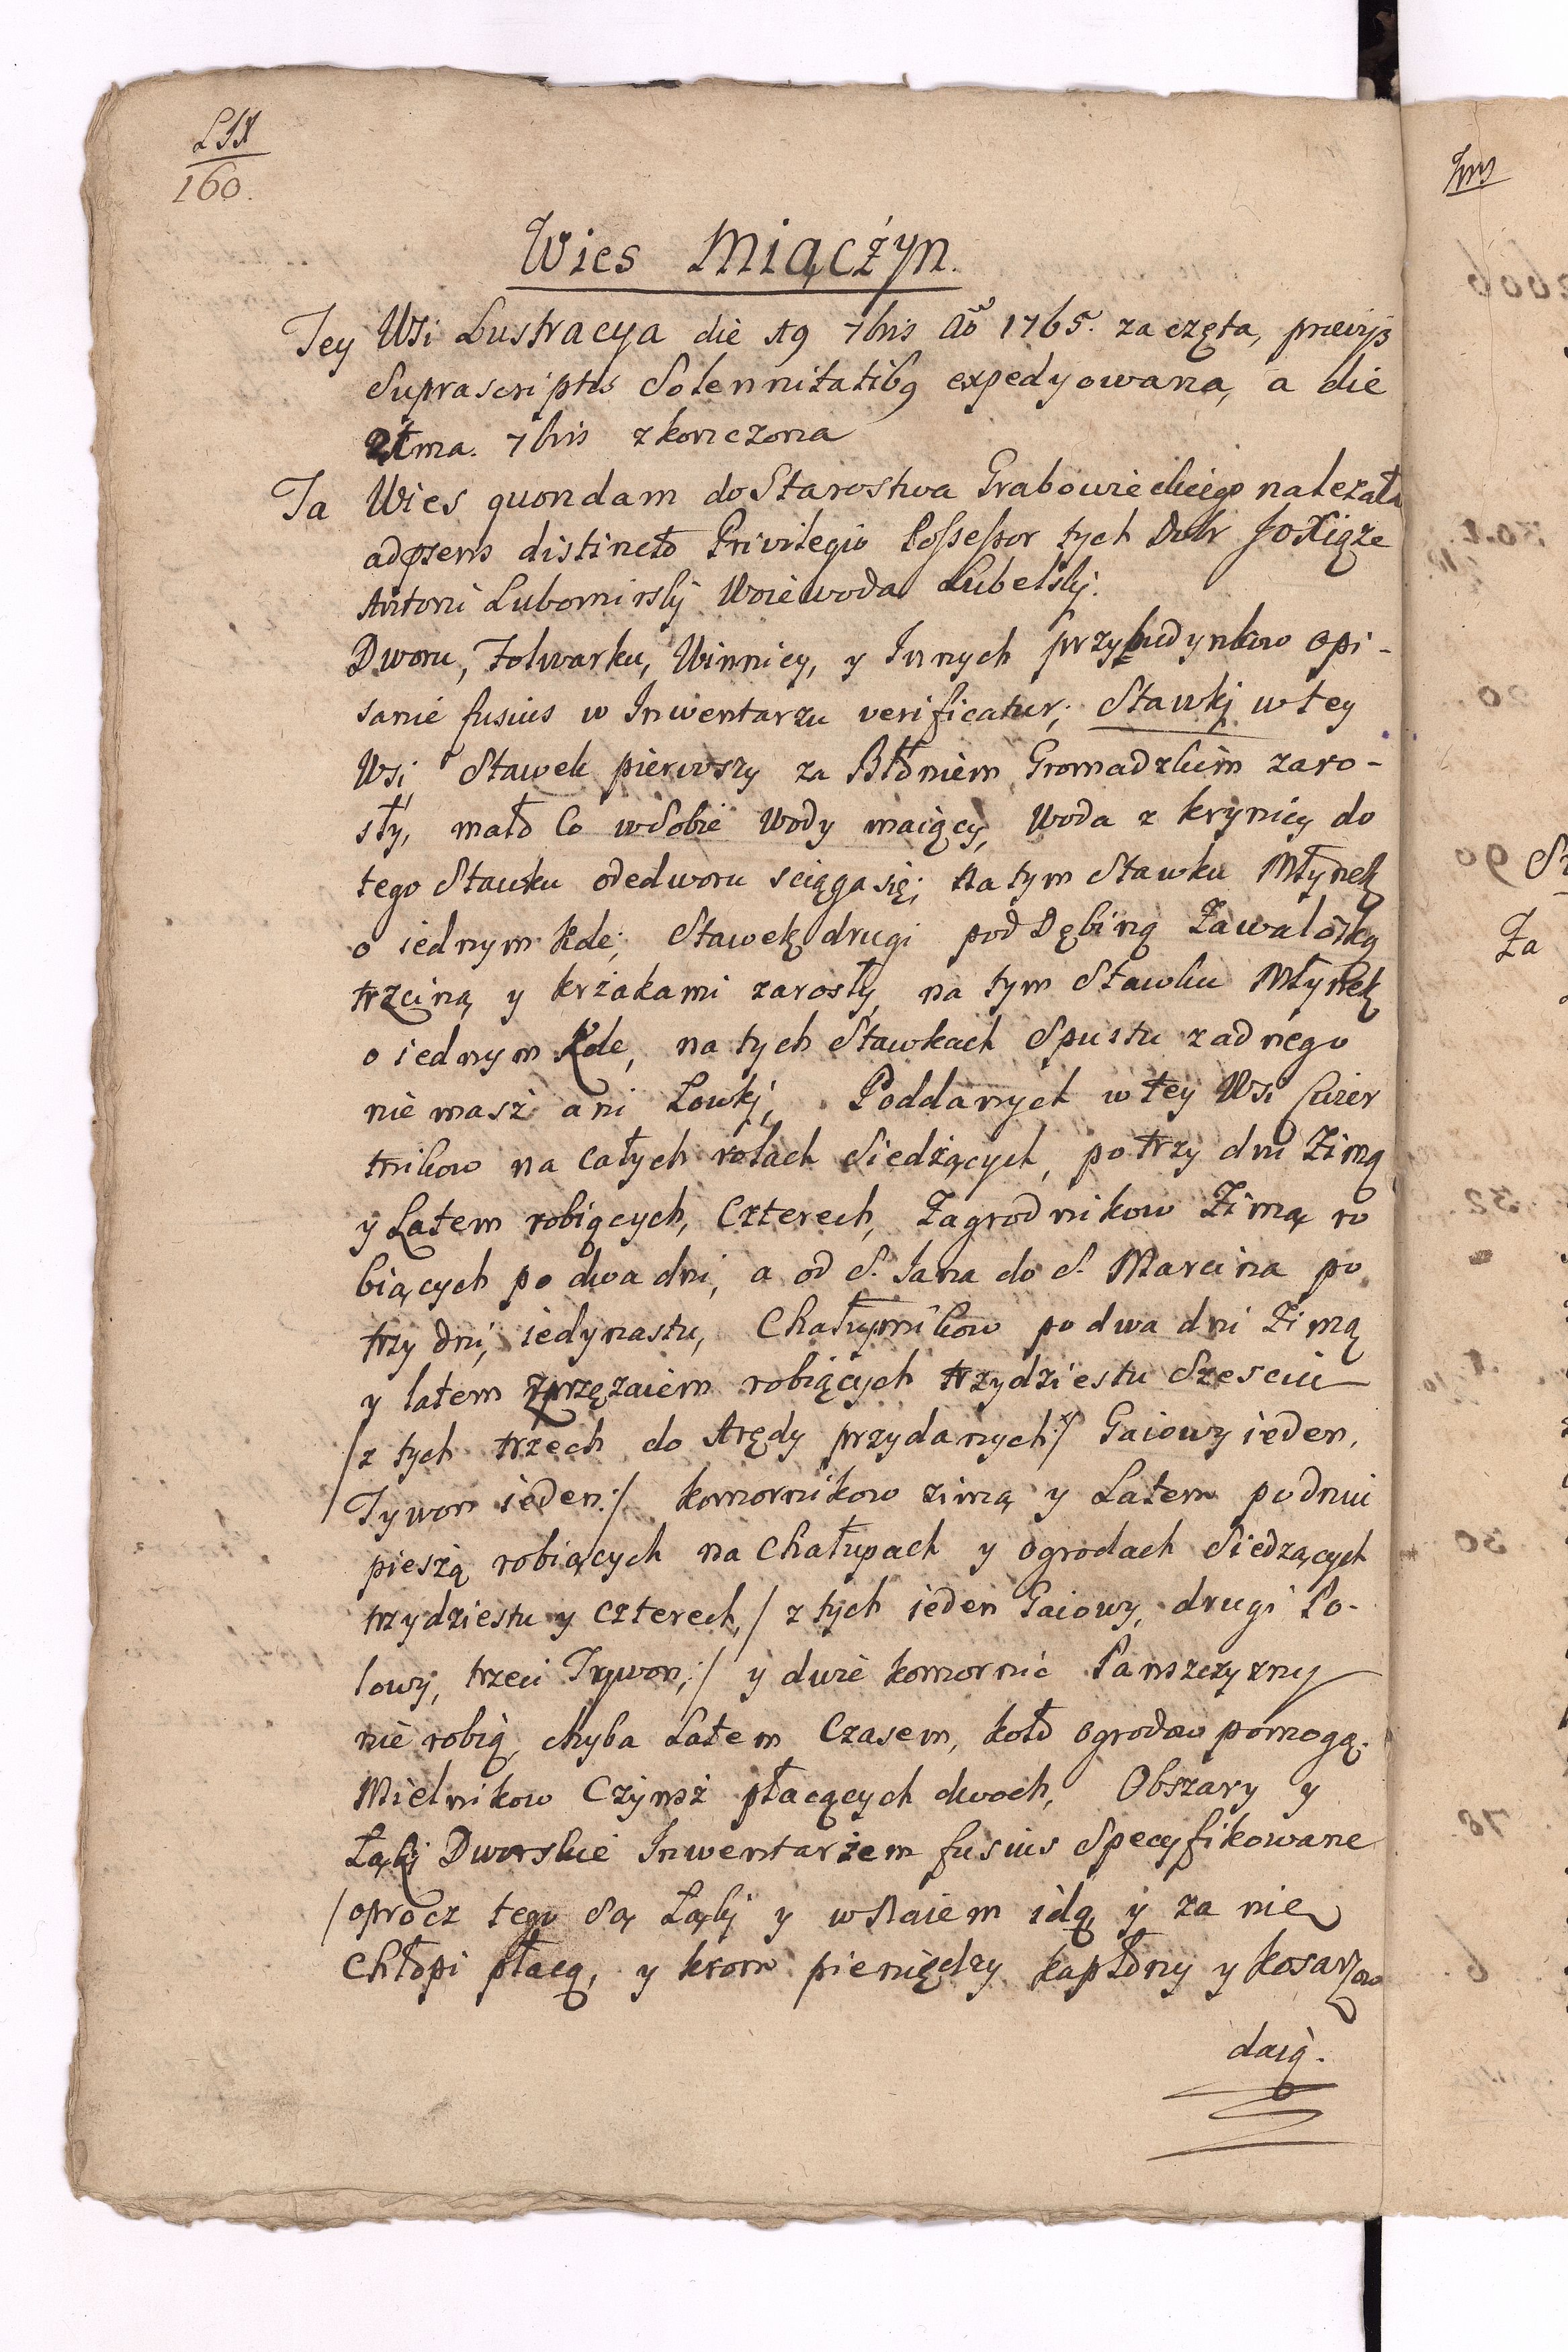 160.
Wies Miączyn.
Tey Wsi Lustracya die 19 7bris Aõ 1765. zaczęta, praevijs
Suprascriptis Solennitatibq expedyowana, a die
21ma. 7bris zkonczona
Ta Wies quondam do Starostwa Grabowieckiego nalezała
adpsens distincto Privilegio Possessor tych Dobr Jo Xiąże
Antoni Lubomirskj Woiewoda Lubelskj.
Dworu, Folwarku, Winnicy, y Innych przybudynkow opi-
sanie fusius w Inwentarzu verificatur; Stawkj w tey
Wsi Stawek pierwszy za Błoniem Gromadzkim zaro-
sły, mało Co w Sobie Wody maiący, Woda z krynicy do
tego Stawku odedworu sciąga się; Na tym Stawku Młynek
o iednym Kole; Stawek drugi pod Dębiną Zawalolką
trzciną y krzakami zarosły, na tym Stawku Młynek
o iednym Kole, na tych Stawkach Spustu zadnego
nie masz ani Łowkj, Poddanych w tey Wsi Cwier
tnikow na całych rolach Siedzących, po trzy dni Zimą
y Latem robiących, Czterech, Zagrodnikow Zimą ro
biących po dwa dni, a od S. Jana do S. Marcina po
trzy dni, iedynastu, Chałupnikow po dwa dni Zimą
y latem zprzęzaiem robiących trzydziestu Szesciu
/ z tych trzech do Arędy przydanych :/ Gaiowy ieden,
/ Tywon ieden :/ komornikow zimą y Latem po dniu
pieszą robiących na Chałupach y ogrodach Siedzących
trzydziestu y Czterech, / z tych ieden Gaiowy, drugi Po-
lowy, trzeci Tywon, :/ y dwie komornic Panszczyzny
nie robią, chyba Latem Czasem, koło ogrodow pomogą.
Mielnikow Czynsz płacących dwoch, Obszary y
Łąkj Dworskie Inwentarzem fusius Specyfikowane
/ oprocz tego Są Łąkj y w Naiem idą y za nie
Chłopi płacą, y krom pieniędzy kapłony y kosarzow
daią.